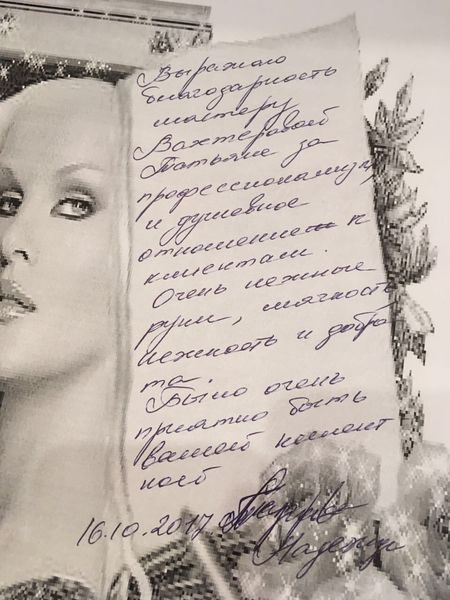 Выражаю
благодарность
мастеру
Вахтеровой
Татьяне за
профессионализм
и душевное
отношение к
клиентам.
Очень нежные
руки, мягкость
нежность и добро
та.
Было очень
приятно быть
вашей клиент
кой
16.10.2017
Надежда